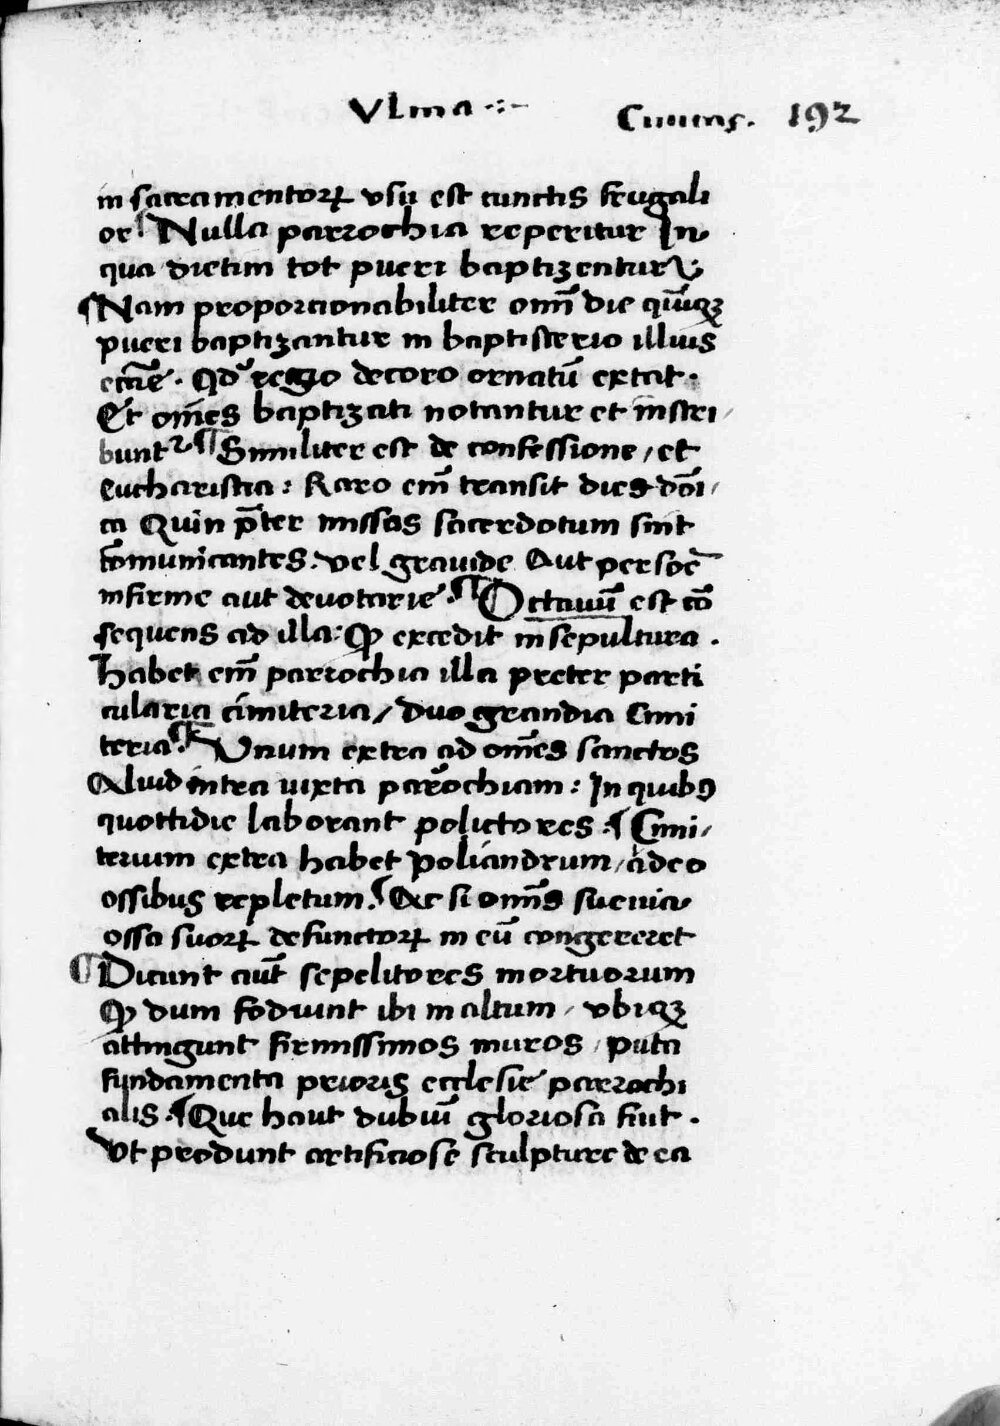 Vlma
Ciuitas. 192
in sacramentoꝝ vsu est cunctis frugali
or¶ Nulla parrochia reperitur In
qua dietim tot pueri baptizentur
¶ Nam proporcionabiliter om̄i die quīqꝫ
pueri baptizantur in baptisterio illius
eccīe. Qd' regio decoro ornatū extat.
Et om̄es baptizati notantur et inscri/
buntᷣ ¶ Similiter est de confessione / et
eucharistia: Raro em̄ transit dies dōi/
ca Quin p̄ter missas sacerdotum sint
cōmunicantes. vel grauide Aut persoē
infirme aut deuotarie. ¶ Octauū est cō
sequens ad illa: Qꝫ excedit in sepultura.
habet em̄ parrochia illa preter parti
cularia cimiteria / duo grandia Cimi
teria ¶ Vnum extra ad om̄es sanctos
Aliud intra iuxta parochiam: In quibꝰ
quottidie laborant polictores. ¶ Cimi/
terium extra habet Poliandrum / adeo
ossibus repletum. ¶ Ac si om̄is sueuia
ossa suoꝝ defunctoꝝ in eū congereret
¶ Dicunt aūt sepelitores mortuorum
Qꝫ dum fodiunt ibi in altum / vbiqꝫ
attingunt firmissimos muros / puta
fundamenta prioris ecclesie parrochi
alis. ¶ Que haut dubiū gloriosa fuit.
Vt produnt artificiose sculpture de ea